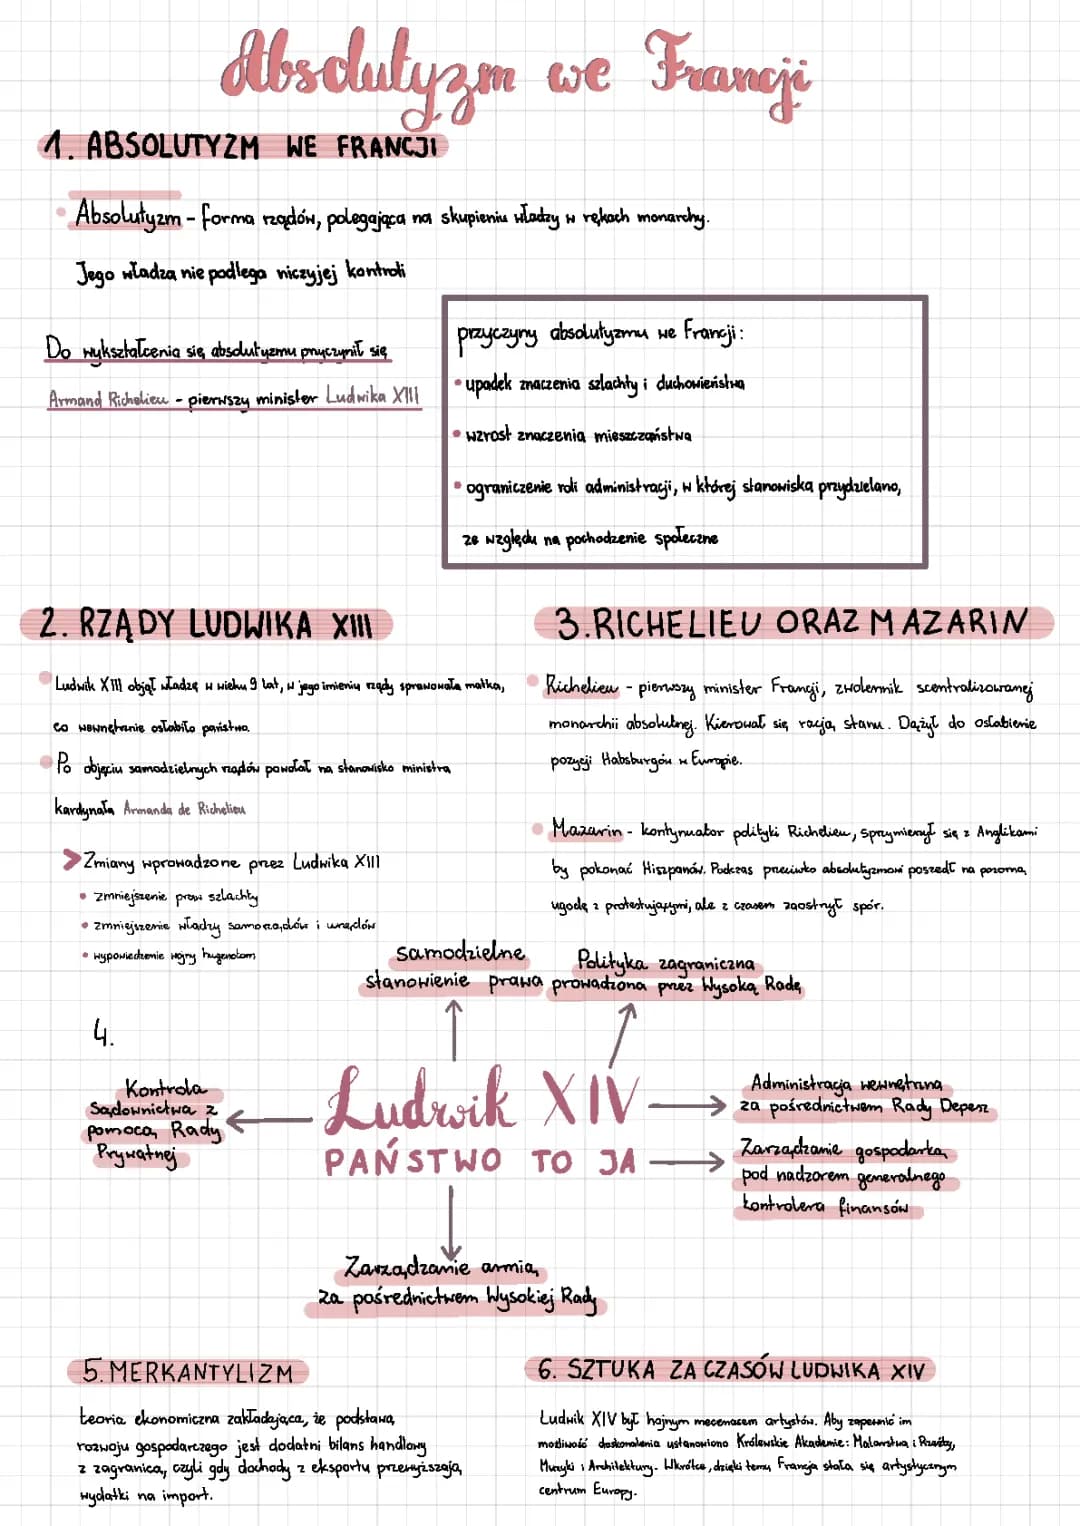 Absolutyzm we Francji
1. ABSOLUTYZM WE FRANCJI
Absolutyzm - forma rządów, polegająca na skupieniu władzy w rękach monarchy.
Jego władza nie podlega niczyjej kontroli
Do wykształcenia się absolutyzmu przyczynił się
Armand Richelieu - pierwszy minister Ludwika XIII
przyczyny absolutyzmu we Francji:
• upadek znaczenia szlachty i duchowieństwa
• wzrost znaczenia mieszczaństwa
• ograniczenie roli administracji, w której stanowiska przydzielano,
ze względu na pochodzenie społeczne
2. RZĄDY LUDWIKA XIII
• Ludwik XIII objął władzę w wieku 9 lat, w jego imieniu rządy sprawowała matka,
co wewnętrznie osłabiło państwo.
• Po objęciu samodzielnych rządów powołał na stanowisko ministra
kardynała Armanda de Richelieu
> Zmiany wprowadzone przez Ludwika XIII
• zmniejszenie praw szlachty
• zmniejszenie władzy samorządów i urzędów
• wypowiedzenie wojny hugenotom
3. RICHELIEU ORAZ MAZARIN
• Richelieu - pierwszy minister Francji, zwolennik scentralizowanej
monarchii absolutnej. Kierował się racją stanu. Dążył do osłabienie
pozycji Habsburgów w Europie.
• Mazarin - kontynuator polityki Richelieu, sprzymierzył się z Anglikami
by pokonać Hiszpanów. Podczas przeciwko absolutyzmowi poszedł na pozorną
ugodę z protestującymi, ale z czasem zaostrzył spór.
4.
samodzielne
stanowienie prawa
Polityka zagraniczna
prowadzona przez Wysoką Radę
Kontrola
Sądownictwa z
pomocą Rady
Prywatnej
Ludwik XIV
PAŃSTWO TO JA
Administracja wewnętrzna
za pośrednictwem Rady Depesz
Zarządzanie gospodarką
pod nadzorem generalnego
kontrolera finansów
Zarządzanie armią
za pośrednictwem Wysokiej Rady
5. MERKANTYLIZM
teoria ekonomiczna zakładająca, że podstawą
rozwoju gospodarczego jest dodatni bilans handlowy
z zagranicą, czyli gdy dochody z eksportu przewyższają
wydatki na import.
6. SZTUKA ZA CZASÓW LUDWIKA XIV
Ludwik XIV był hojnym mecenasem artystów. Aby zapewnić im
możliwość doskonalenia ustanowiono Królewskie Akademie: Malarstwa i Rzeźby,
Muzyki i Architektury. Wkrótce, dzięki temu Francja stała się artystycznym
centrum Europy.